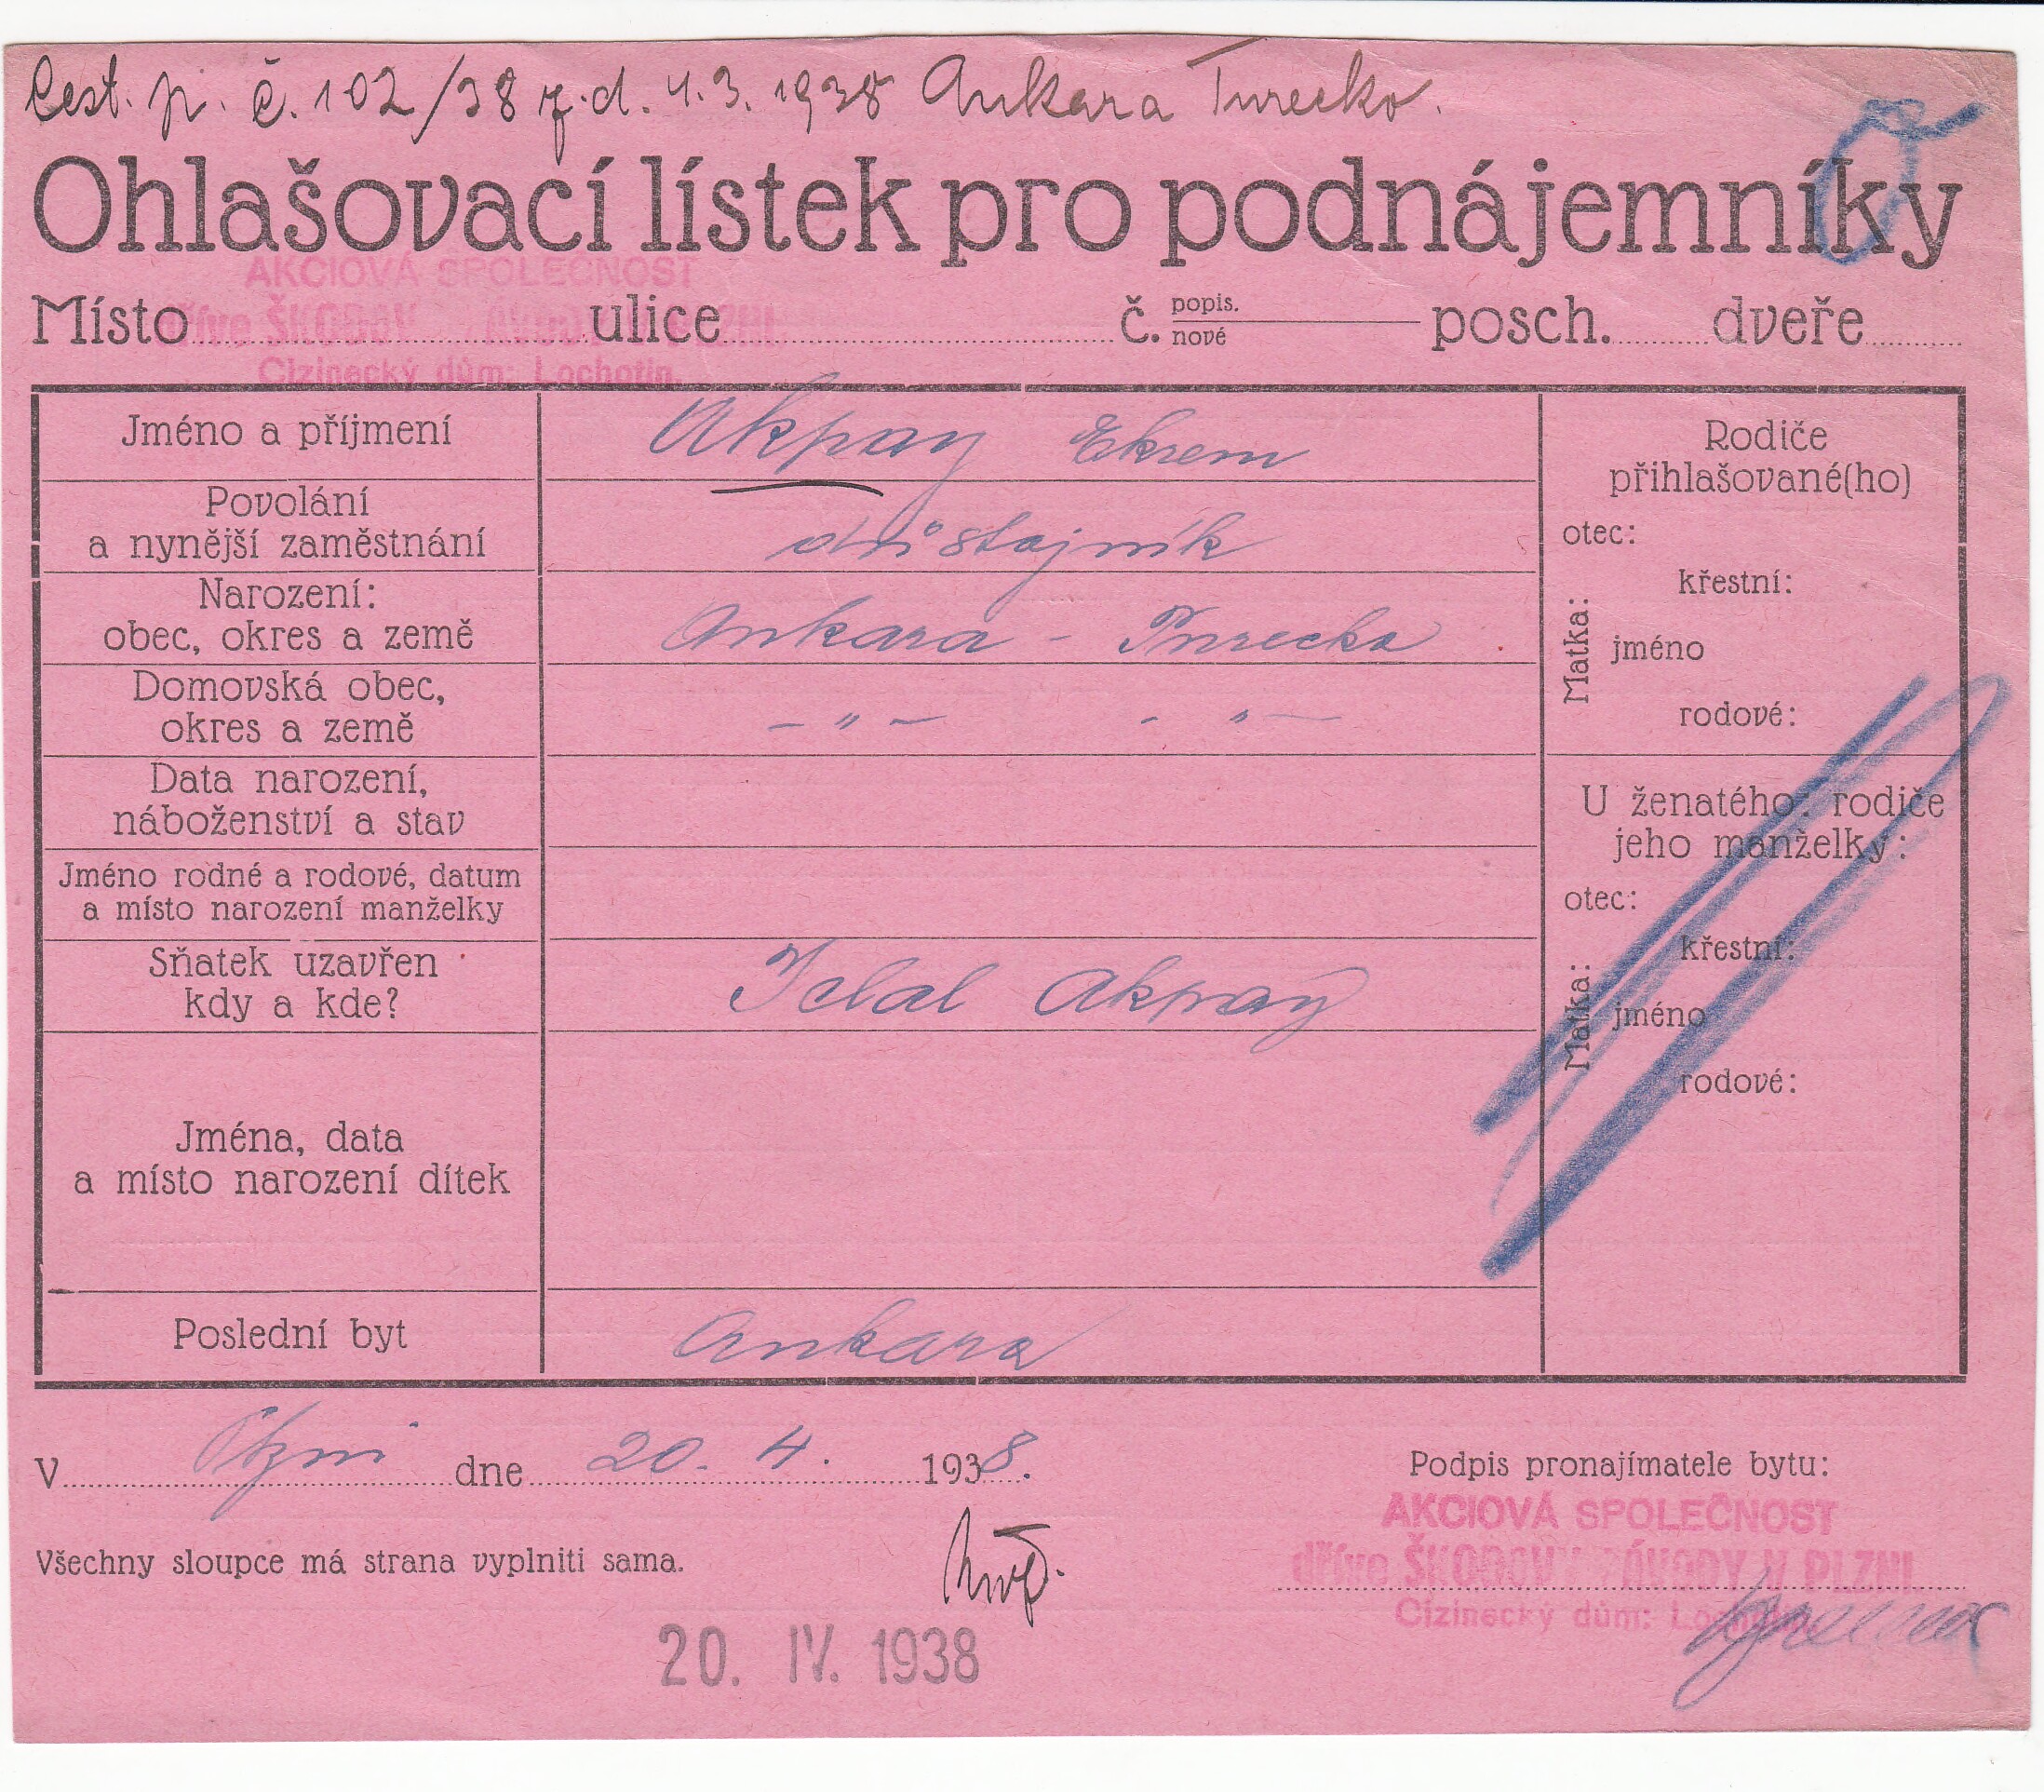 Cest. p. č. 102/38 z. d. 4. 3. 1938 Ankara Turecko.
Ohlašovací lístek pro podnájemníky
AKCIOVÁ SPOLEČNOST
dříve ŠKODOVY ZÁVODY V PLZNI
Cizinecký dům: Lochotín.
Místo ulice č. popis. nové posch. dveře
Jméno a příjmení
Akpay Ekrem
Povolání
a nynější zaměstnání
důstojník
Narození:
obec, okres a země
Ankara - Turecko
Domovská obec,
okres a země
- " - - " -
Data narození,
náboženství a stav
Jméno rodné a rodové, datum
a místo narození manželky
Sňatek uzavřen
kdy a kde?
Iclal Akpay
Jména, data
a místo narození dítek
Poslední byt
Ankara
Rodiče
přihlašované(ho)
otec:
Matka:
křestní:
jméno
rodové:
U ženatého: rodiče
jeho manželky:
otec:
Matka:
křestní:
jméno
rodové:
V Plzni dne 20. 4. 1938.
Podpis pronajímatele bytu:
AKCIOVÁ SPOLEČNOST
dříve ŠKODOVY ZÁVODY V PLZNI
Cizinecký dům: Lochotín.
Všechny sloupce má strana vyplniti sama.
20. IV. 1938